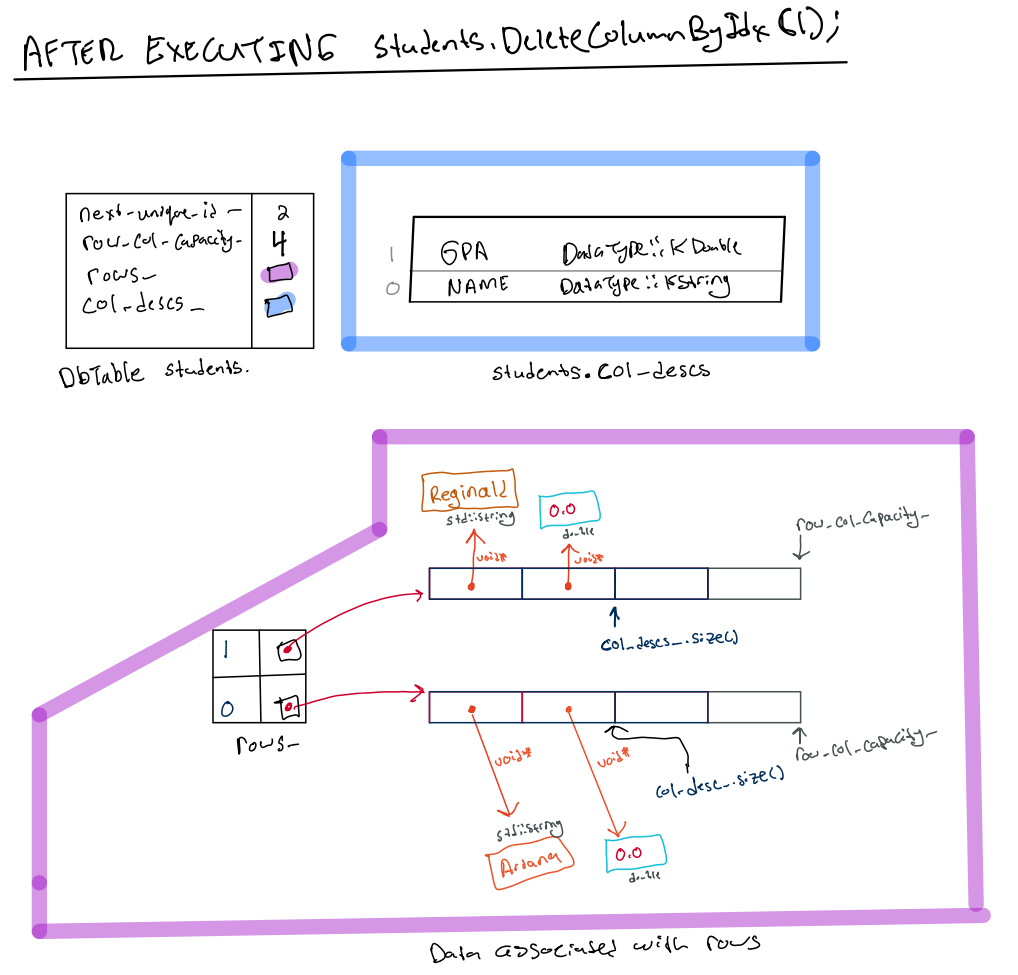 AFTER EXECUTING students.DeleteColumnByIdx(1);
next_unique_id_ 2
row_col_capacity_ 4
rows_
col_descs_
DbTable students.
1 GPA DataType::kDouble
0 NAME DataType::kString
students.col_descs
Reginald
std::string
void*
0.0
double
void*
row_col_capacity_
col_descs_.size()
1
0
rows_
row_col_capacity_
col_desc_.size()
void*
void*
std::string
Ariana
0.0
double
Data associated with rows